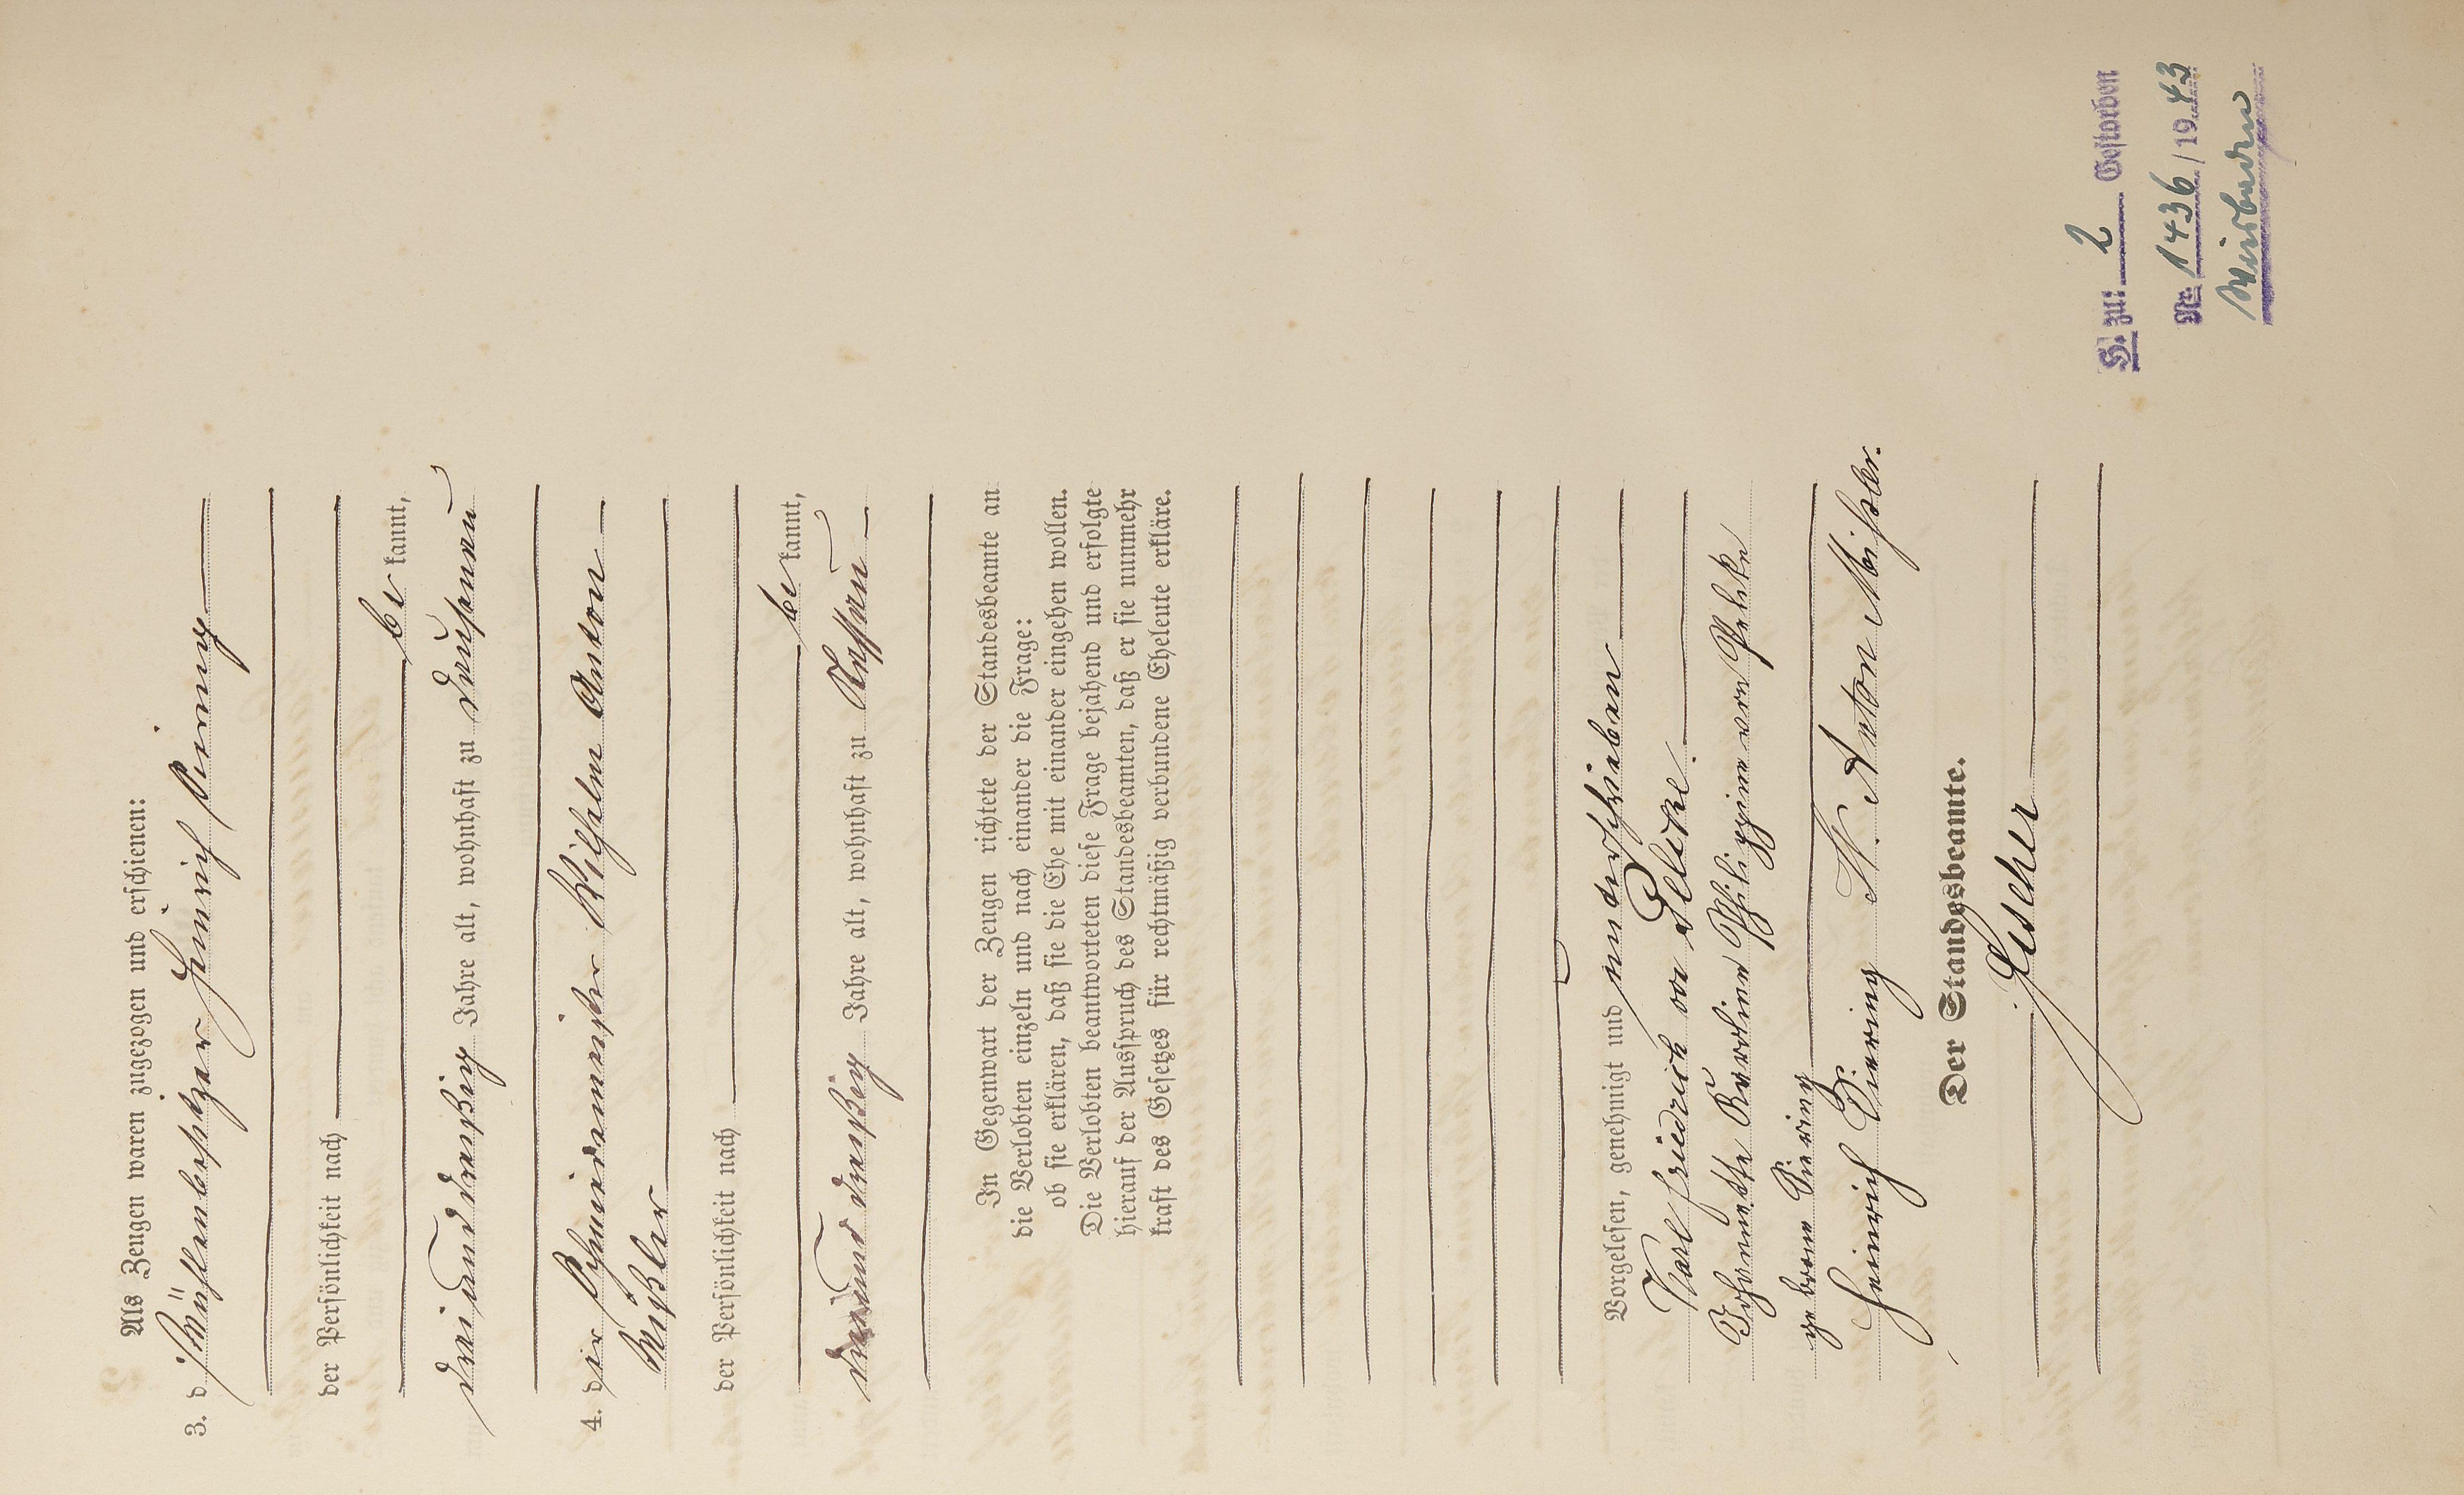 Als Zeugen waren zugezogen und erschienen:
3. der Mühlenbesitzer Heinrich Piering
der Persönlichkeit nach
be kannt,
dreiunddreißig Jahre alt, wohnhaft zu
4. der Schneidermeister Wilhelm Anton
Mißler
der Persönlichkeit nach
be kannt,
dreiunddreißig Jahre alt, wohnhaft zu
In Gegenwart der Zeugen richtete der Standesbeamte an
die Verlobten einzeln und nach einander die Frage:
ob sie erklären, daß sie die Ehe mit einander eingehen wollen.
Die Verlobten beantworteten diese Frage bejahend und erfolgte
hierauf der Ausspruch des Standesbeamten, daß er sie nunmehr
kraft des Gesetzes für rechtmäßig verbundene Eheleute erkläre.
Vorgelesen, genehmigt und unterschrieben
Karl Friedrich von
Johannette Karoline Philippine von
geborene Piering
Heinrich Piering W. Anton Mißler.
Der Standesbeamte.
H. zu: 2 Gestorben
Nr. 1436/1943
Wiesbaden